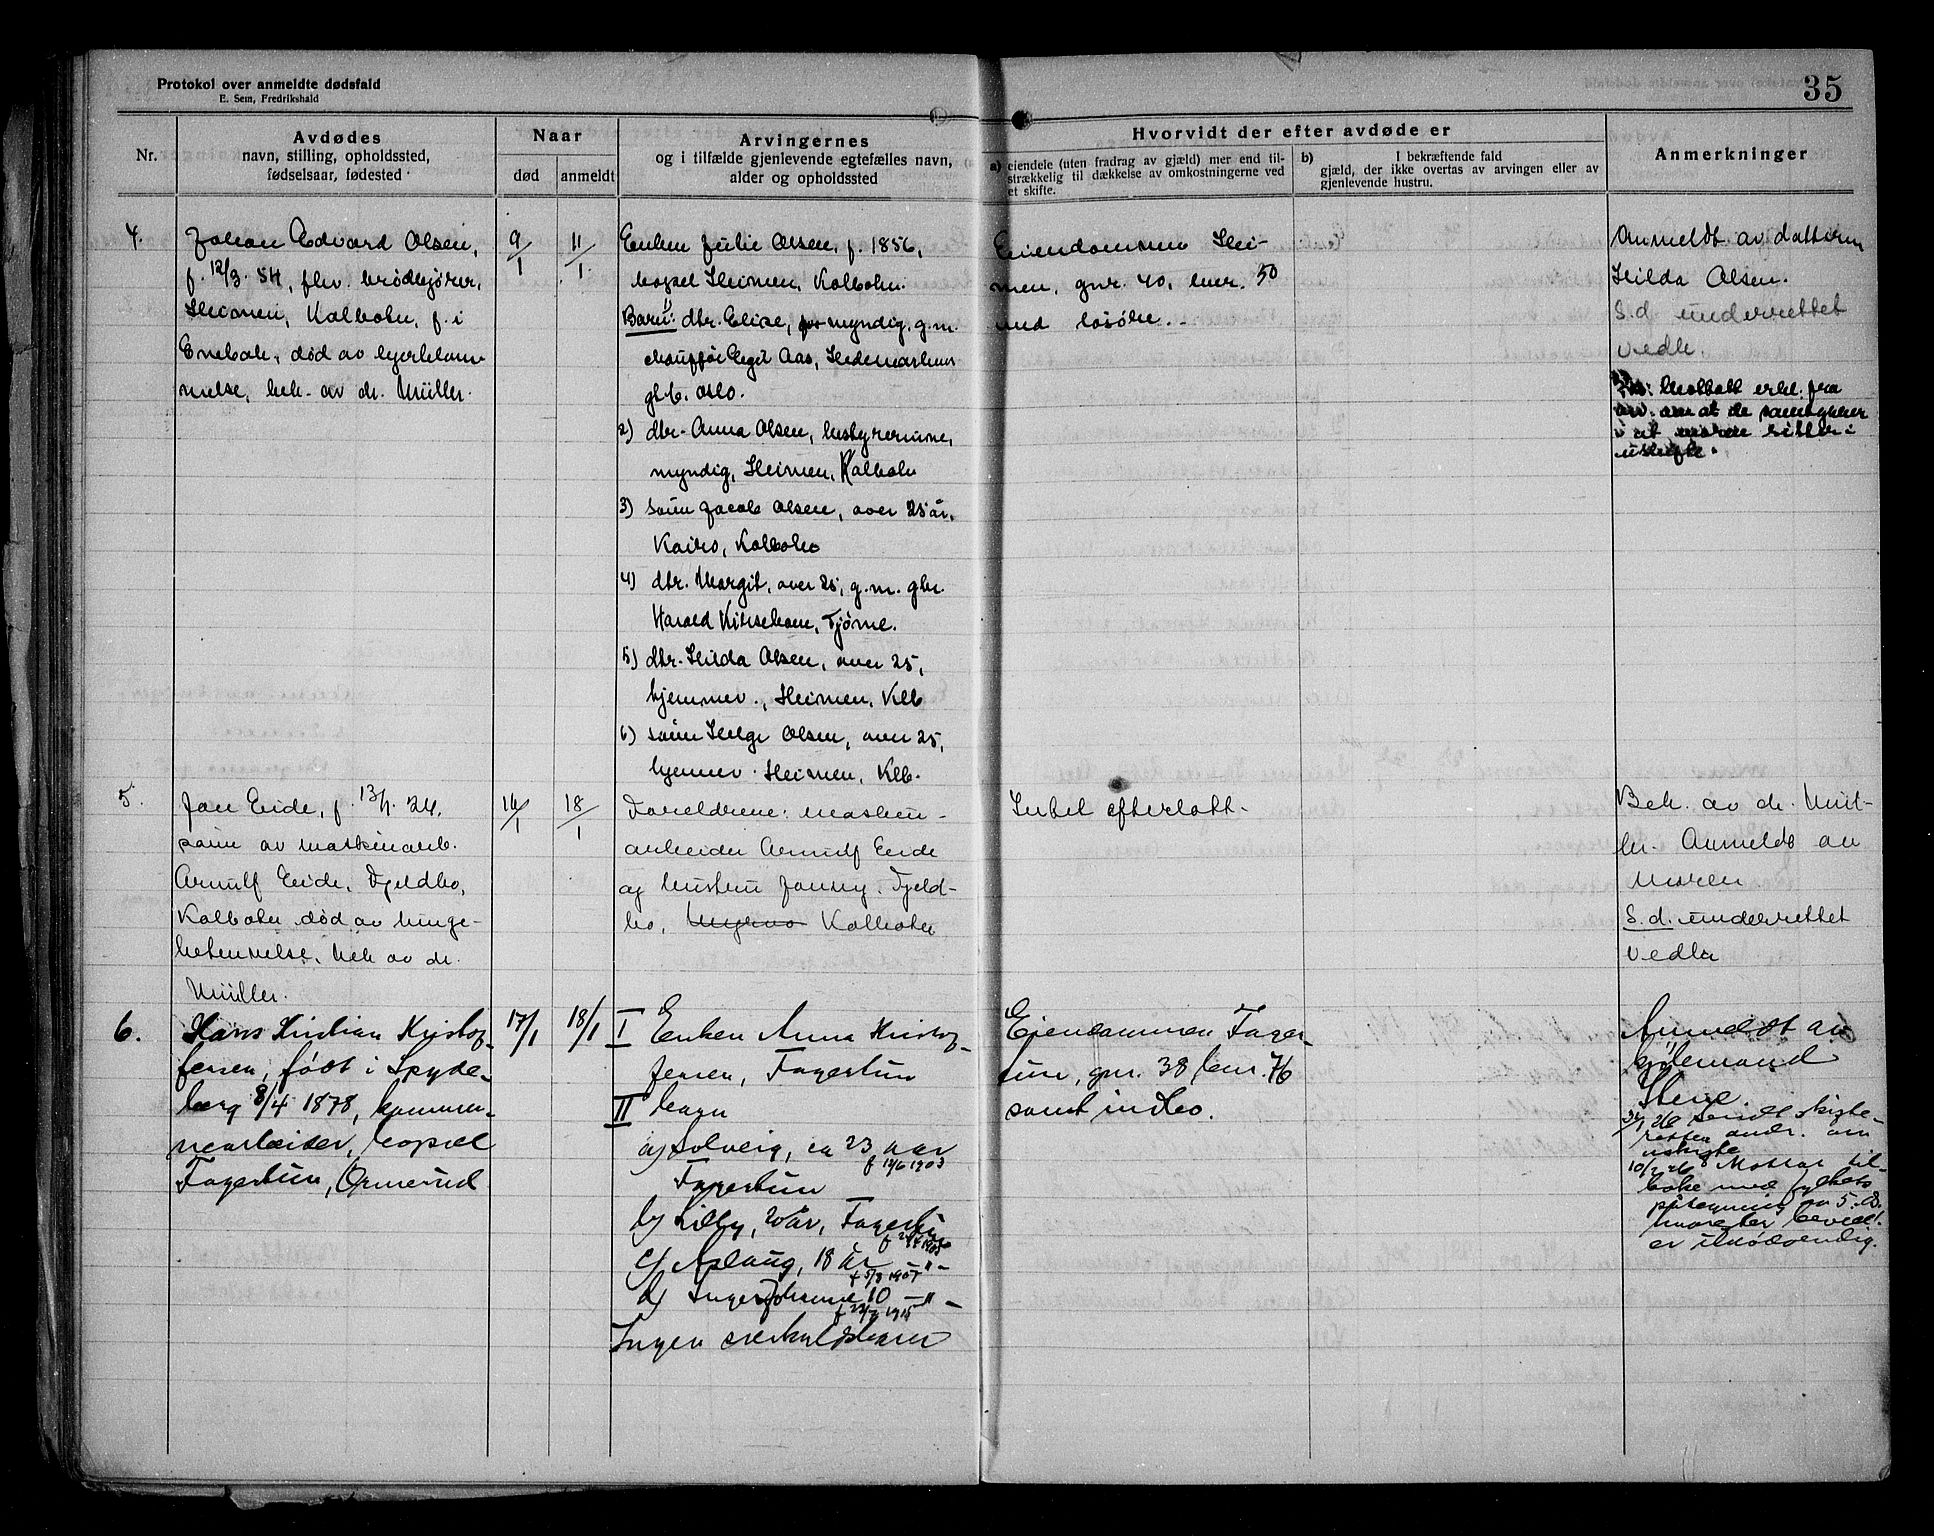 Protokol over anmeldte dødsfald
E. Sem, Fredrikshald
35
Nr.
Avdødes
navn, stilling, opholdssted,
fødselsaar, fødested
Naar
død
anmeldt
Arvingernes
og i tilfælde gjenlevende egtefælles navn,
alder og opholdssted
Hvorvidt der efter avdøde er
a) eiendele (uten fradrag av gjæld) mer end til-
strækkelig til dækkelse av omkostningerne ved
et skifte.
b) I bekræftende fald
gjæld, der ikke overtas av arvingen eller av
gjenlevende hustru.
Anmerkninger
4.
Johan Edvard Olsen,
f. 12/3. 54, fhv. brødkjører,
Heimen, Kolbotn, f. i
Enebak, død av hjertelam-
melse, bek. av dr. Müller.
9/1
11/1
Enken Julie Olsen, f. 1856,
bopæl Heimen, Kolbotn.
Barn: 1) dtr. Elise, myndig. g.m.
chauffør Eget Aas, Hedemarkens
gt. 6. Oslo.
2) dtr. Anna Olsen, husbyrerinne,
myndig, Heimen, Kolbotn
3) sønn Jacob Olsen, over 25 år,
Kairo, Kolbotn
4) dtr. Margit, over 25, g.m. gbr.
Harald Kirsebom, Tjøme.
5) dtr. Hilda Olsen, over 25,
hjemmev., Heimen, Klb
6) sønn Helge Olsen, over 25,
hjemmev. Heimen, Klb.
Eiendommen Hei-
men, gnr. 40, bnr. 50
med løsøre.
Anmeldt av datteren
Hilda Olsen.
S.d. underrettet
vedk.
Mottatt erkl. fra
arv. om at de samtykker
i at moren sitter i
uskifte.
5.
Jan Eide, f. 13/1. 24.
sønn av maskinarb.
Arnulf Eide, Fjeldbo,
Kolbotn, død av lunge-
betennelse, bek av dr.
Müller.
16/1
18/1
Foreldrene: maskin-
arbeider Arnulf Eide
og hustru Jonny. Fjeld-
bo, Kolbotn
Intet efterlatt.
Bek. av dr. Mül-
ler. Anmeldt av
Moren
S.d. underrettet
vedk
6.
Hans Kristian Kristof-
fersen, født i Spyde-
berg 8/4 1878, kommu-
nearbeider, bopæl
Fagertun, Ormerud
17/1
18/1
I Enken Anna Kristof-
fersen, Fagertun
II barn
a) Solveig, ca 23 aar
f 12/6 1903
Fagertun
b) Lilly, 20 år, Fagertun
c) Aslaug, 18 år -"-
f 5/8 1907
d) Inger Johanne 10 -"-
Ingen særkuldsbarn
Eiendommen Fager-
tun, gnr. 38 bnr. 76
samt indbo.
Anmeldt av
kjølemand
Stene.
26 sendt skifte-
retten andr. om
uskifte
10/2 26 Mottat til-
bake med fylkets
påtegning av 5. ds.
hvorefter bevill.
er unødvendig.